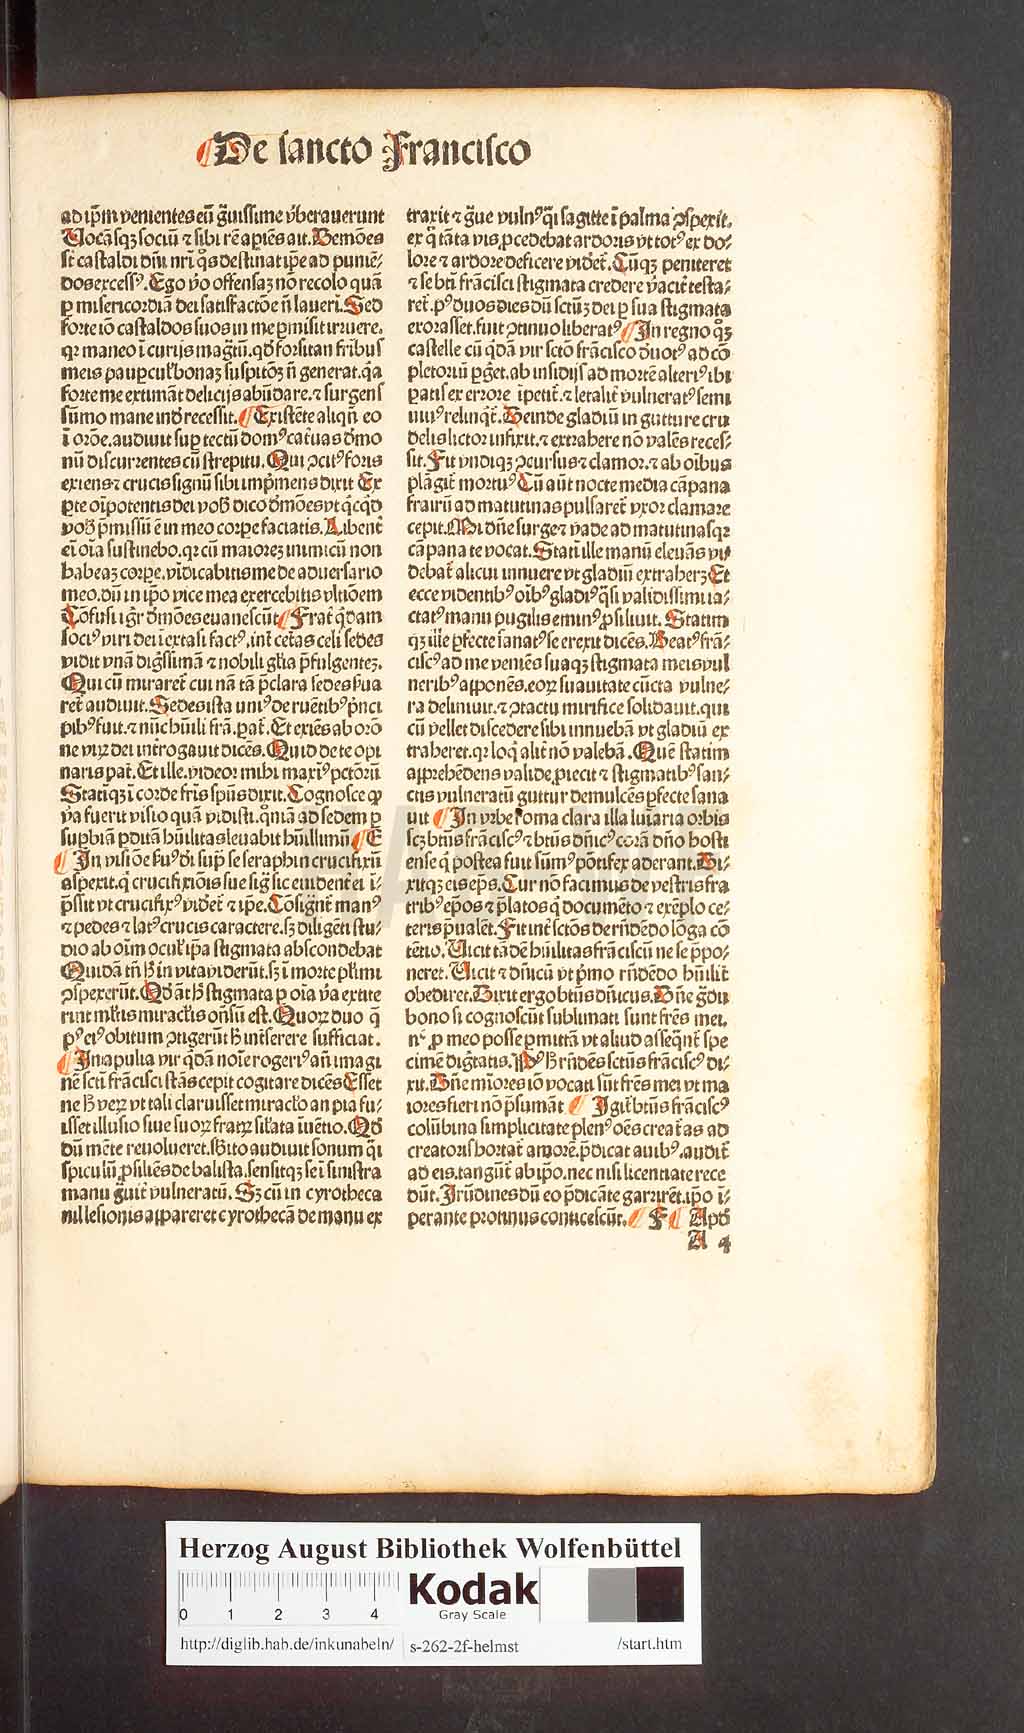 De sancto Francisco
ad ip̄m venientes eū g̃uissime v̓berauerunt
Uocās qꝫ sociū ⁊ sibi rē apiēs ait. Demōes
st̄ castaldi dn̄i nr̄i q̊s destinat ip̄e ad puniē⸗
dos excessꝰ. Ego v̓o offensaꝫ nō recolo quā
ꝑ misericordiā dei satisfactōe n̄ laueri. Sed
forte iō castaldos suos in me ꝑmisit irruere.
qꝛ maneo ī curijs mag̃tū. qd̓ forsitan fr̄ibus
meis pauꝑcul̓ bonaꝫ suspitōꝫ n̄ generat. q̓a
forte me extimāt delicijs abūdare. ⁊ surgens
sūmo mane īnd̓ recessit. Existēte aliqn̄ eo
ī orōe. audiuit suꝑ tectū domꝰ cat̓uas d̓mo
nū discurrentes cū strepitu. Qui ꝯcitꝰ foris
exiens ⁊ crucis signū sibi imp̓mens dixit Ex
ꝑte oīpotentis dei vob̓ dico d̓mōes vt q̓cq̓d
vob̓ ꝑmissū ē in meo corꝑe faciatis. Libent̓
eī oīa sustinebo. qꝛ cū maioreꝫ inimicū non
habeaꝫ corꝑe. vīdicabitis me de aduersario
meo. dū in ip̄o vice mea exercebitis vltiōem
Cōfusi igr̄ d̓mōes euanescūt Frat̓ q̓dam
sociꝰ viri dei ī extasi factꝰ. int̓ cet̓as celi sedes
vidit vnā dig̃ssimā ⁊ nobili gl̓ia p̄fulgenteꝫ.
Qui cū miraret̓ cui nā tā p̄clara sedes s̓ua
ret̓ audiuit. Sedes ista vniꝰ de ruētibꝰ p̓nci
pibꝰ fuit. ⁊ nūc hūili frā. ꝑat̓. Et exiēs ab orō
ne virꝫ dei int̓rogauit dicēs. Quid de te opi
naris pat̓. Et ille. videor mihi maxīꝰ pctōrū
Statīqꝫ ī corde fr̄is sp̄us dixit. Cognosce ꝙ
v̓a fuerit visio quā vidisti. qm̄ ad sedem ꝑ
suꝑbiā ꝑditā hūilitas leuabit hūillimū E
In visiōe ẜuꝰ di supͣ se seraphin crucifixū
aspexit. q̓ crucifixiōis sue sig̃ sic euident̓ ei ī⸗
p̄ssit vt crucifixꝰ videt̓ ⁊ ip̄e. Cōsignt̓ manꝰ
⁊ pedes ⁊ latꝰ crucis caractere. sꝫ diligēti stu⸗
dio ab oīm ocul̓ ip̄a stigmata abscondebat
Quidā tn̄ h̓ in vita viderūt. sꝫ ī morte pl̓imi
ꝯspexerūt. Qd̓ āt h̓ stigmata ꝑ oīa v̓a extite
rint ml̓tis miracl̓is on̄su ē st. Quorꝫ duo q̄
pꝰ eiꝰ obitum ꝯtigerūt h̓ int̓serere sufficiat.
In apulia vir q̓dā noīe rogeriꝰ an̄ imagi
nē sct̄i frācisci stās cepit cogitare dicēs Esset
ne h̓ verꝫ vt tali claruisset miracl̓o an pia fu⸗
isset illusio siue suorꝫ fratrꝫ sil̓ata īuētio. Qd̓
dū mēte reuolueret. sb̓ito audiuit sonum q̓si
spiculū ꝓsiliēs de balista. sensitqꝫ se ī sinistra
manu g̃uit̓ vulneratū. Sꝫ cū in cyrotheca
nil lesionis appareret cyrothecā de manu ex
traxit ⁊ g̃ue vulnꝰ q̓si sagitte ī palma ꝯspexit.
ex q̊ tāta vis ꝓcedebat ardoris vt totꝰ ex do⸗
lore ⁊ ardore deficere videt̓. Cūqꝫ peniteret
⁊ se bt̄i frācisci stigmata credere v̓acit̓ testa⸗
ret̓. pꝰ duos dies dū sctūꝫ dei ꝑ sua stigmata
exorasset. fuit ꝯtinuo liberatꝰ In regno q̊qꝫ
castelle cū q̓dā vir sctō frācisco d̓uotꝰ ad cō
pletoriū ꝑg̓et. ab insidijs ad mortē alteriꝰ ibi
ꝑatis ex errore īpetit̓. ⁊ letalit̓ vulneratꝰ semi
uiuꝰ relinq̓t̓. Deinde gladiū in gutture cru
delis lictor infixit. ⁊ extrahere nō valēs reces⸗
sit. Fit vndiqꝫ ꝯcursus ⁊ clamor. ⁊ ab oībus
plāgit̓ mortuꝰ Cū aūt nocte media cāpana
fratrū ad matutinas pulsaret̓ vxor clamare
cepit. Mi dn̄e surge ⁊ vade ad matutinas qꝛ
cāpana te vocat. Statī ille manū eleuās vi⸗
debat̓ alicui innuere vt gladiū extraherꝫ Et
ecce videntibꝰ oībꝰ gladiꝰ q̓si validissimi ia⸗
ctatꝰ manu pugilis eminꝰ ꝓsiliuit. Statim
qꝫ ille ꝑfecte sanatꝰ se erexit dicēs. Beatꝰ frā⸗
ciscꝰ ad me veniēs suaqꝫ stigmata meis vul
neribꝰ apponēs. eorꝫ suauitate cūcta vulne⸗
ra deliniuit. ⁊ ꝯtactu mirifice solidauit. qui
cū vellet discedere sibi innuebā vt gladiū ex
traheret. qꝛ loq̓ alit̓ nō valebā. Quē statim
apprehēdens valide ꝓiecit ⁊ stigmatibꝰ san⸗
ctis vulneratū guttur demulcēs ꝑfecte sana
uit In vrbe roma clara illa luīaria orbis
scꝫ bt̄us frāciscꝰ ⁊ bt̄us dn̄icꝰ corā dn̄o hosti
ense q̓ postea fuit sūmꝰ pōtifex aderant. Di⸗
xitqꝫ eis ep̄s. Cur nō facimus de vestris fra
tribꝰ ep̄os ⁊ p̄latos q̓ documēto ⁊ exēplo ce⸗
teris p̄ualēt. Fit int̓ sctōs de rn̄dēdo lōga cō
tētio. Uicit tādē hūilitas frāciscū ne se p̄po⸗
neret. Uicit ⁊ dn̄icū vt p̓mo rn̄dēdo hūilit̓
obediret. Dixit ergo bt̄us dn̄icus. Dn̄e g̃du
bono si cognoscūt sublimati sunt fr̄es mei.
nͨ ꝓ meo posse ꝑmittā vt aliud asseq̓nt̓ spe
cimē dig̃tatis. Pꝰ h̓ rn̄dēs sctūs frāciscꝰ di⸗
xit. Dn̄e miores iō vocati sūt fr̄es mei vt ma
iores fieri nō p̄sumāt Igit̓ bt̄us frāciscꝰ
colūbina simplicitate plenꝰ oēs creat̓as ad
creatoris hortat̓ amorē. p̄dicat auibꝰ. audit̓
ad eis. tangūt̓ ab ip̄o. nec nisi licentiate rece
dūt. Irūdines dū eo p̄dicāte garrirēt. ip̄o ī⸗
perante protinus conticescūt. F Apd̓
A 4
Herzog August Bibliothek Wolfenbüttel
0 1 2 3 4
Kodak
Gray Scale
http://diglib.hab.de/inkunabeln/ s-262-2f-helmst /start.htm